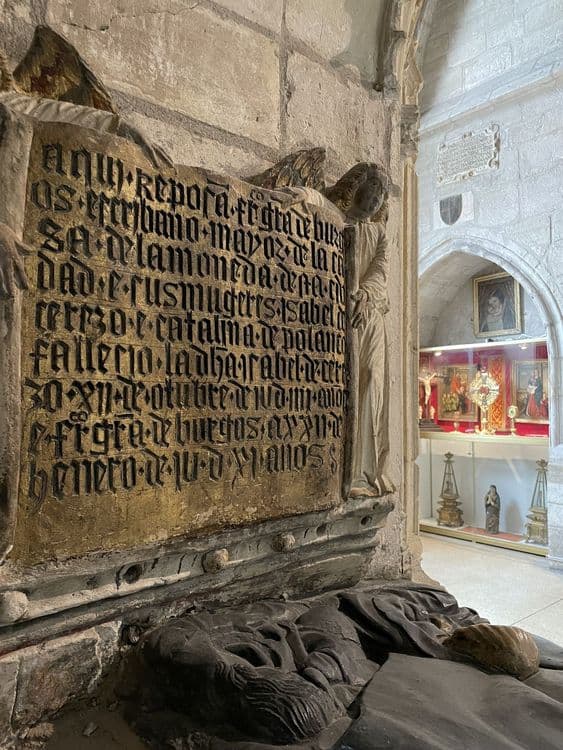 aqui · reposā · frō · grā de burg
os · escribano · mayor · de · la · ca
sa · de · lamoneda · de · sta · ciu
dad · e · susmugeres · isabel · de
cerezo · e · catalina · de · polanco
fallecio · la · dha · isabel · de · cere
zo · xii · de · otubre · de · iv · d · iiii · anos
e · frō · grā · de · burgos · a xxii · de
henero · de · iv · d · xi · anos